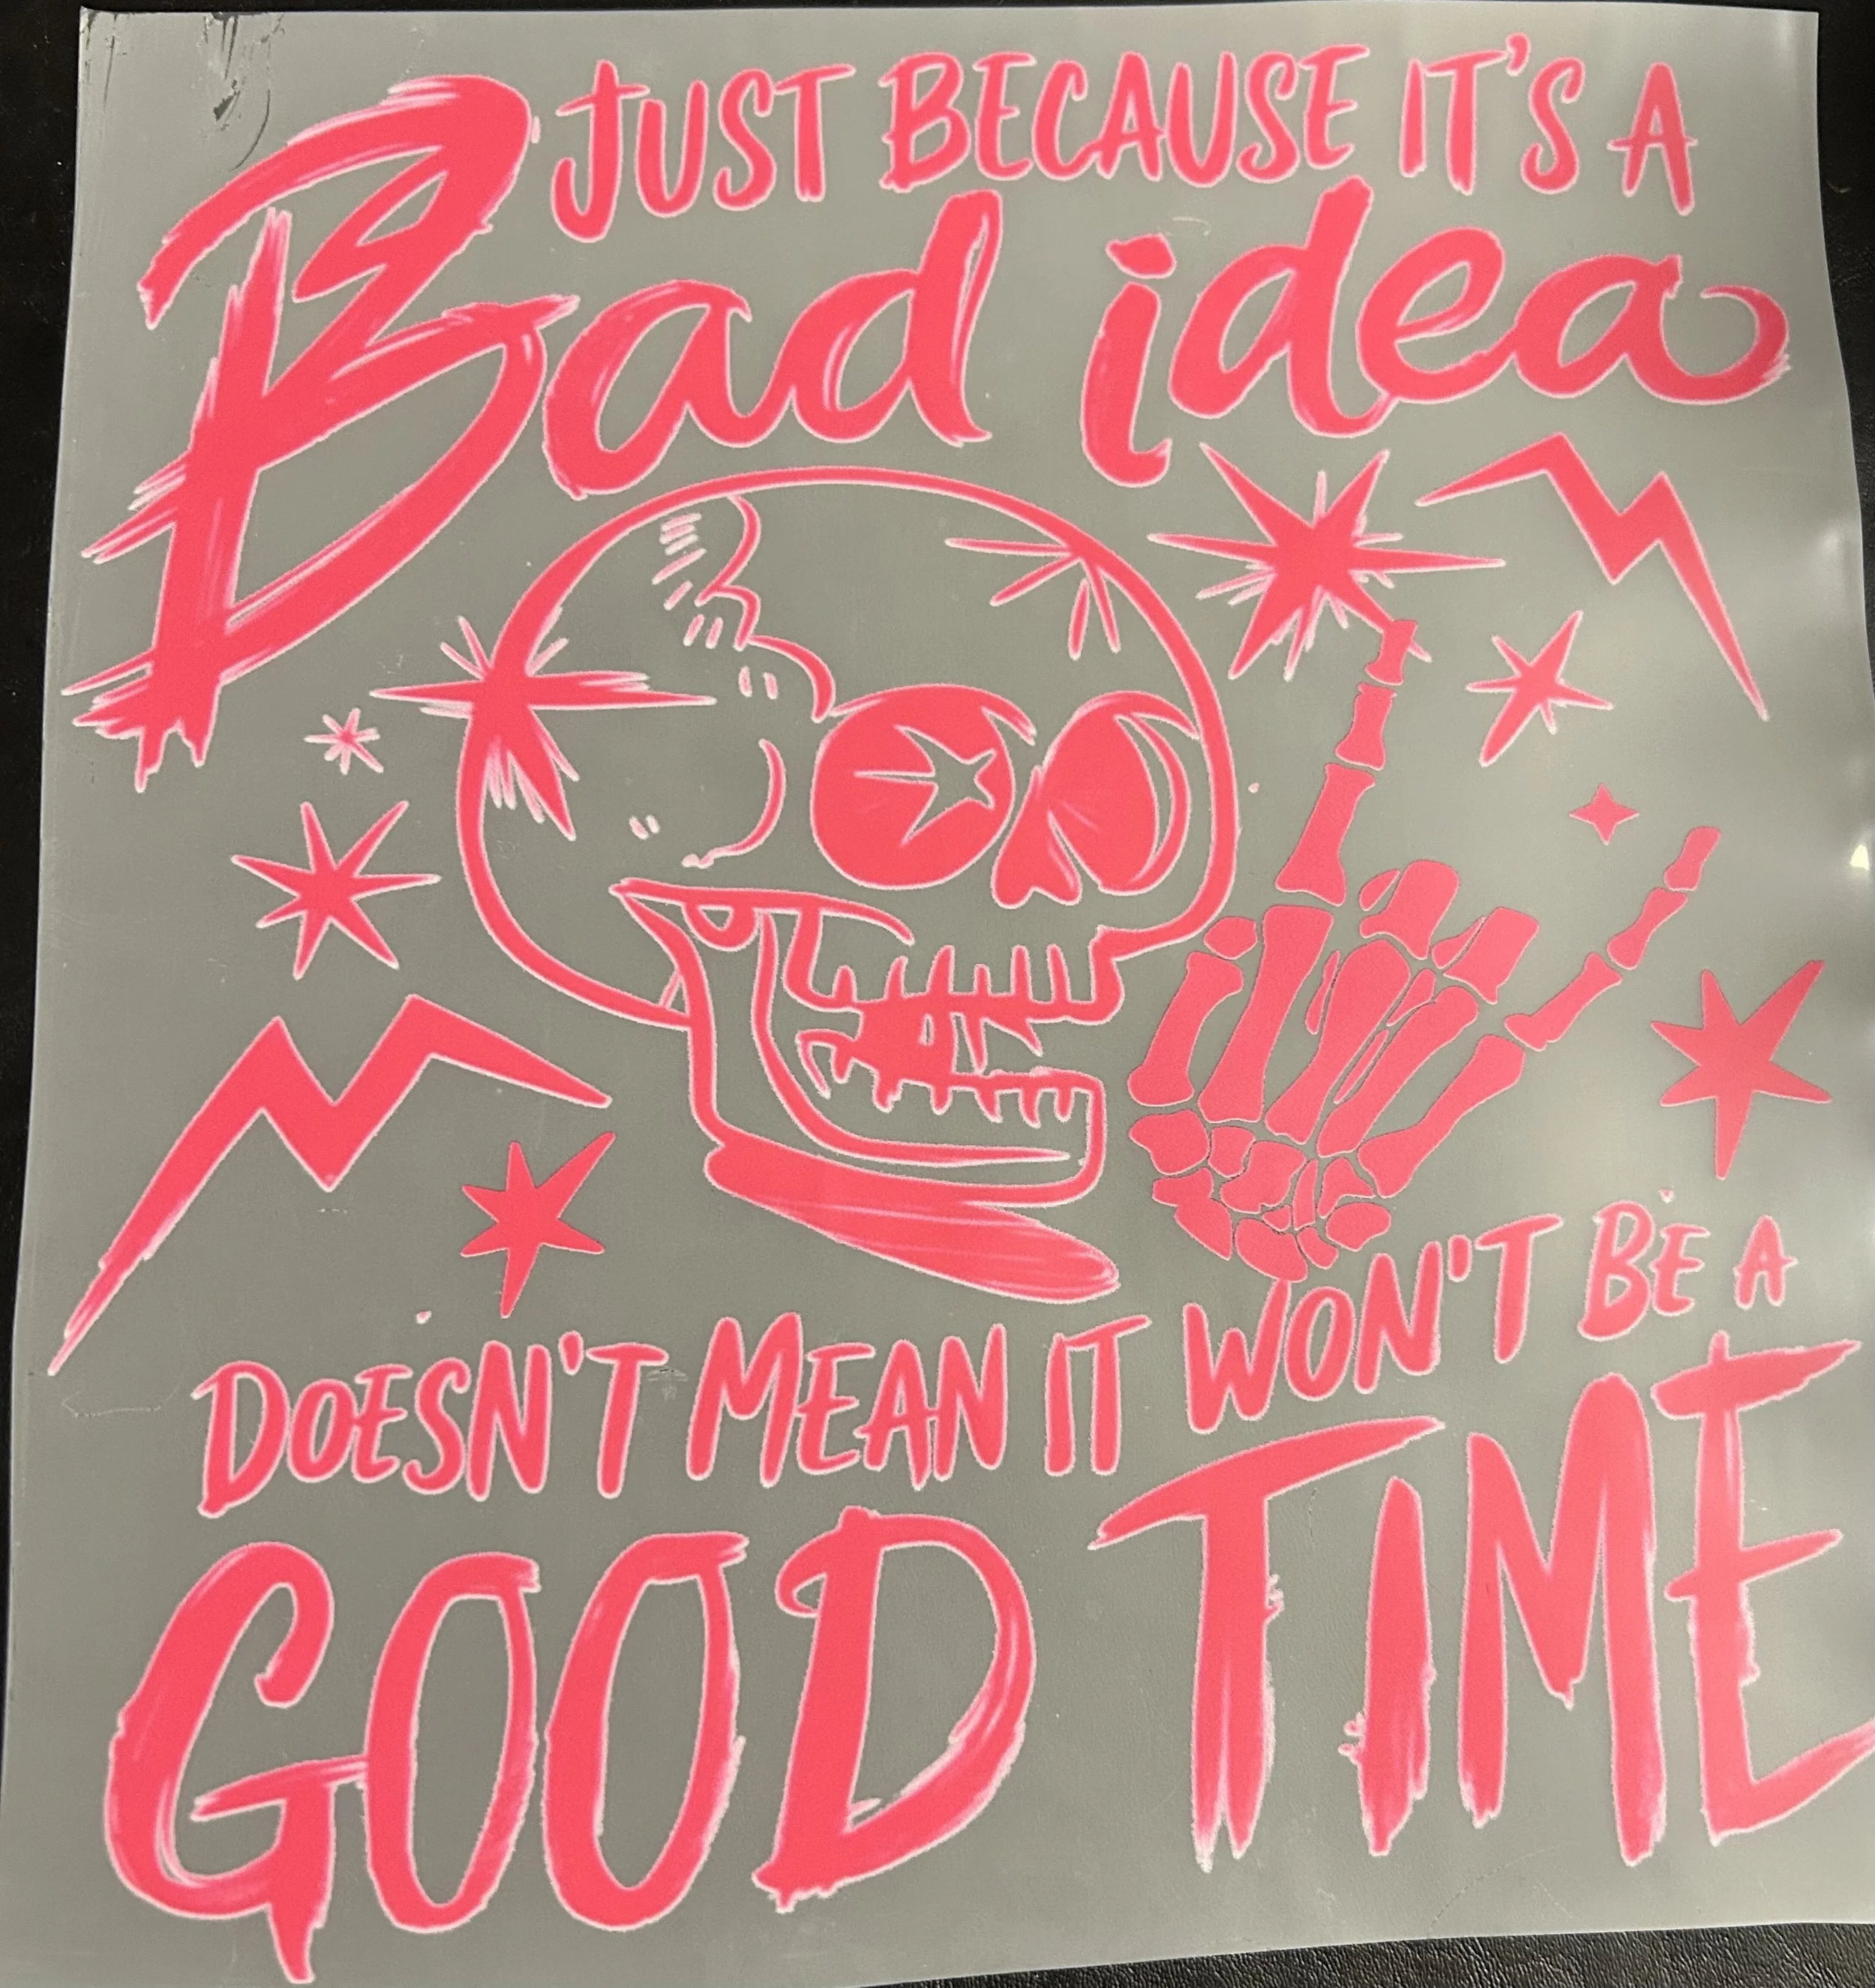 JUST BECAUSE IT'S A
Bad idea
DOESN'T MEAN IT WON'T BE A
GOOD TIME